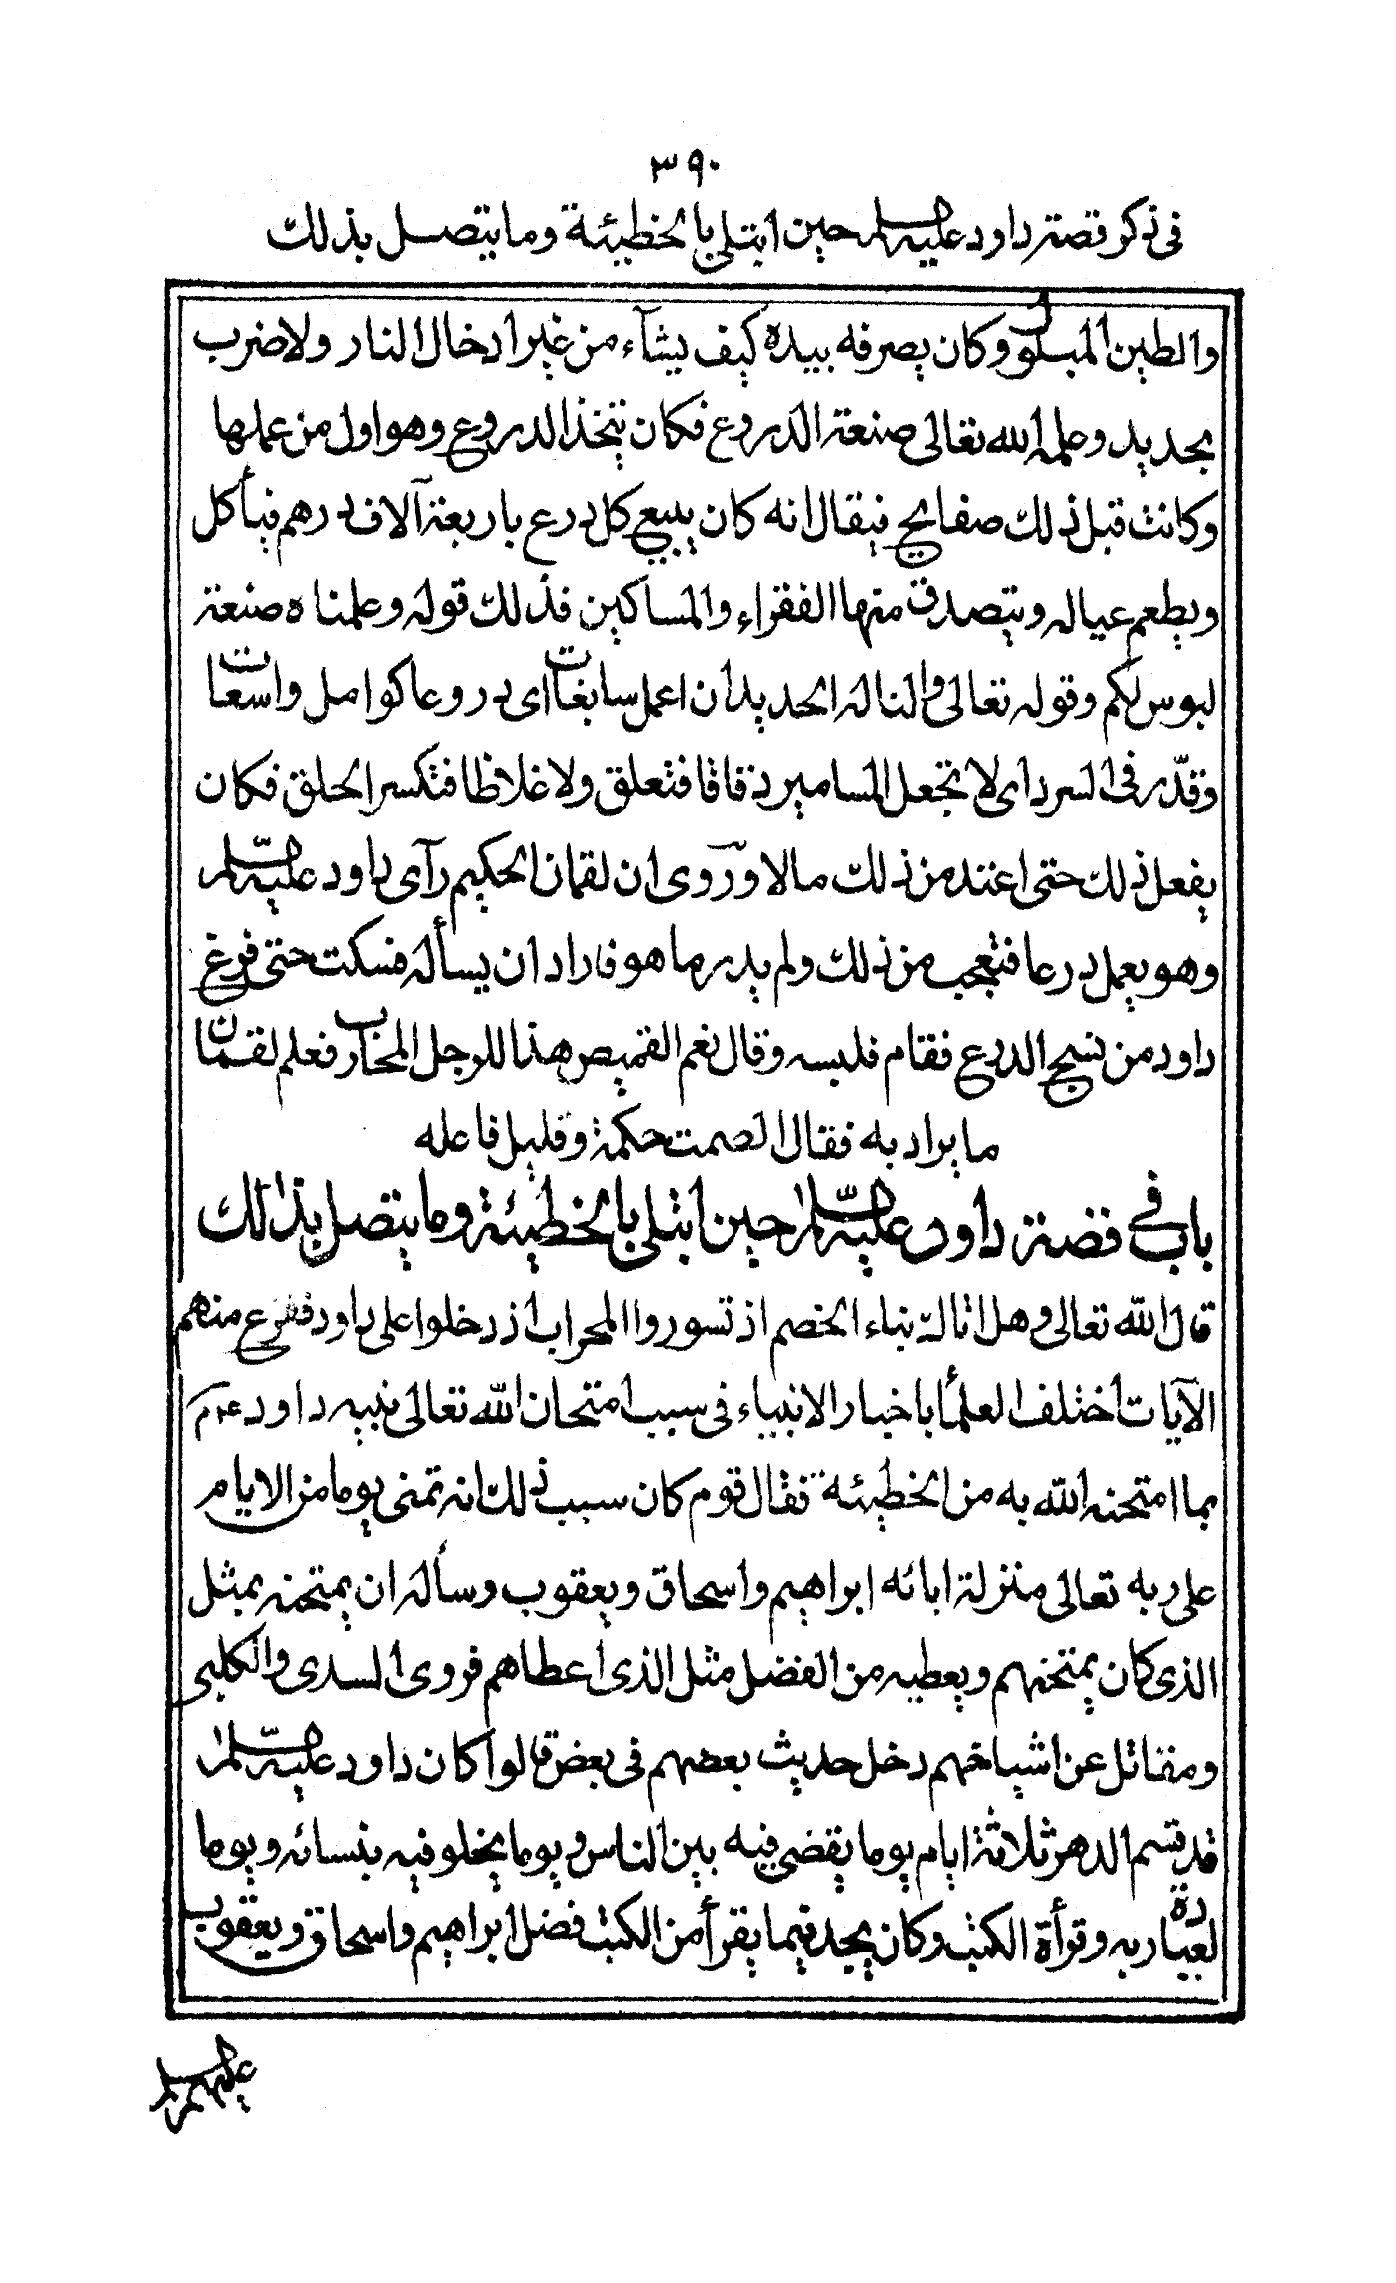 ٣٩٠
في ذكر قصة داود عليه السلم حين ابتلى بالخطيئة وما يتصل بذلك
والطين المبلول وكان يصرفه بيده كيف يشآء من غير ادخال النار ولا ضرب
بحديد وعلمه الله تعالى صنعة الدروع فكان يتخذ الدروع وهو اول من عملها
وكانت قبل ذلك صفايح فيقال انه كان يبيع كل درع باربعة آلاف درهم فيأكل
ويطعم عياله ويتصدق منها الفقراء والمساكين فذلك قوله وعلمناه صنعة
لبوس لكم وقوله تعالى والنا له الحديد ان اعمل سابغات اى دروعا كوامل واسعات
وقدّر في السرد اى لا تجعل المسامير دقاقا فتعلق ولا غلاظا فتكسر الحلق فكان
يفعل ذلك حتى اعتقد من ذلك مالا وروى ان لقمان الحكيم رآى داود عليه السلم
وهو يعمل درعا فتعجب من ذلك ولم يدر ما هو فاراد ان يسأله فسكت حتى فرغ
داود من نسج الدرع فقام فلبسه وقال نعم القميص هذا للرجل المحارب فعلم لقمان
ما يراد به فقال الصمت حكمة وقليل فاعله
باب في قصة داود عليه السّلم حين ابتلى بالخطيئة وما يتصل بذلك
قال الله تعالى وهل اتاك نباء الخصم اذ تسوروا المحراب اذ دخلوا على داود ففزع منهم
الآيات اختلف العلمأ باخبار الانبياء في سبب امتحان الله تعالى نبيه داود عم
بما امتحنه الله به من الخطيئة فقال قوم كان سبب ذلك انه تمنى يوما من الايام
على ربه تعالى منزلة ابائه ابراهيم واسحاق ويعقوب وسأله ان يمتحنه بمثل
الذى كان يمتحنهم ويعطيه من الفضل مثل الذى اعطاهم فروى السدى والكلبى
ومقاتل عن اشياخهم دخل حديث بعضهم في بعض قالوا كان داود عليه السّلم
قد قسم الدهر ثلاثة ايام يوما يقضى فيه بين الناس ويوما يخلو فيه بنسائه ويوما
لعبادة ربه وقرأة الكتب وكان يجد فيما يقرأ من الكتب فضل ابراهيم واسحاق ويعقوب
عليهم السلم